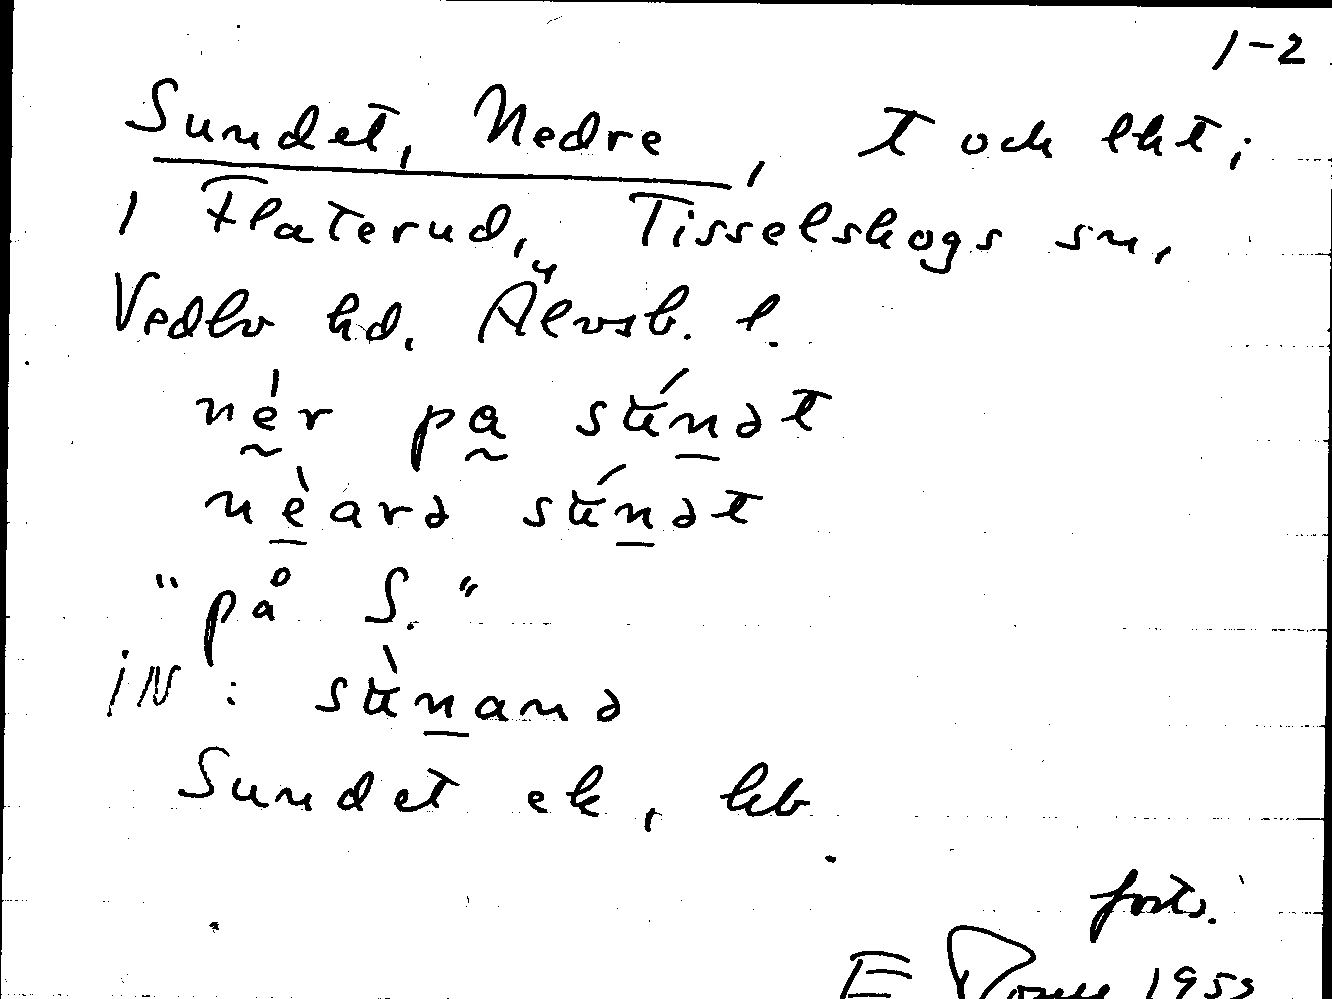 1-2
Sundet, Nedre, T och lht;
1 Flaterud, Tisselskogs sn,
Vedbo hd. Älvsb. l.
nér pa stúndt
nèarə súnət
"på S."
iN: sùnanə
Sundet ek, kb
forts.
E 1953